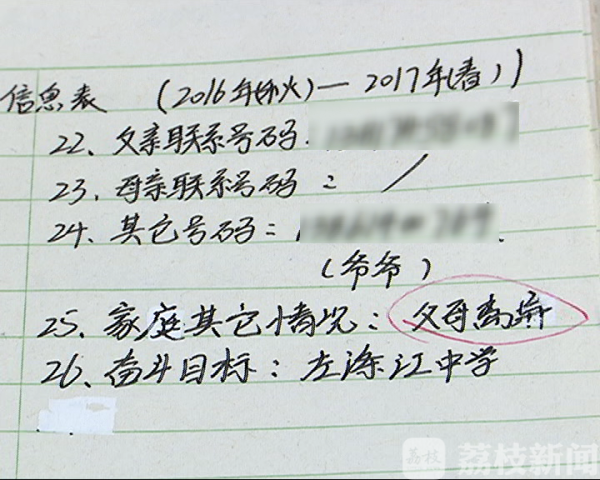 信息表 (2016年(秋)—2017年(春))
22、父亲联系号码:
23、母亲联系号码: /
24、其它号码:
(爷爷)
25、家庭其它情况: 父母离婚
26、奋斗目标: 左涤江中学
荔枝 荔枝新闻